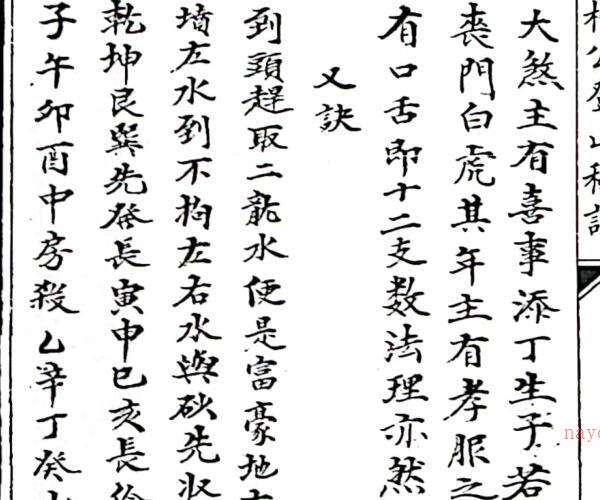 大煞主有喜事添丁生子若
喪門白虎其年主有孝服之
有口舌即十二支数法理亦然
又訣
到頭趕取二龍水便是富豪地
墳左水到不拘左右水與砂先收
乾坤艮巽先發長寅申巳亥長
子午卯酉中房殺乙辛丁癸